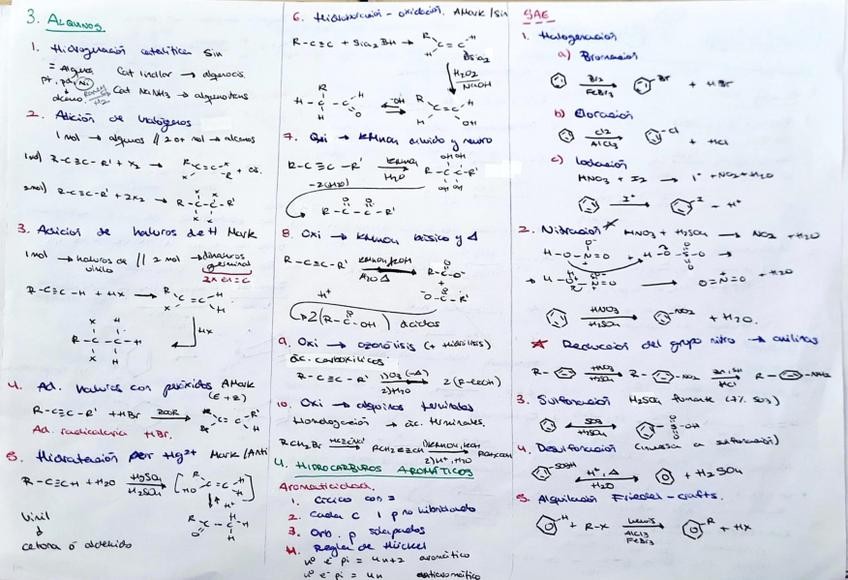 3. ALQUINOS
1. Hidrogenación catalítica Sin
= Alquenos
Pt, Pd, Ni
Cat Lindlar → algenocis
Cat Na NH3 → algenotrans
2. Adición de halógenos
1 mol → alquenos // 2 or mol → alcanos
1 mol) R-C≡C-R' + X2 →
2 mol) R-C≡C-R' + 2X2 → R-C-C-R'
3. Adición de haluros de H Mark
1 mol → haluros de vinilo // 2 mol → dihaluros geminal
R-C≡C-H + HX →
HX
4. Ad. haluros con peróxidos AMark
(E + Z)
R-C≡C-R' + HBr ROOR →
Ad. radicalaria HBr.
5. Hidratación por Hg2+ Mark/Anti
R-C≡C-H + H2O HgSO4 H2SO4 →
Vinil
↓
cetona ó aldehído
6. Hidroboración - oxidación. AMark/Sin
R-C≡C + Sia2BH →
BSia2
H2O2
NaOH
-OH
7. Oxi → KMnO4 diluido y neutro
R-C≡C-R' KMnO4 H2O → R-C-C-R'
-2(H2O)
R-C-C-R'
8. Oxi → KMnO4 básico y Δ
R-C≡C-R' KMnO4, KOH H2O Δ → R-C-O-
+
-O-C-R'
H+
2(R-C-OH) ácidos
9. Oxi → ozonólisis (+ Hidrólisis)
ác. carboxílicos
R-C≡C-R' 1) O3 2) H2O → 2(R-COOH)
10. Oxi → alquinos terminales
Homologación → ác. terminales.
RCH2Br → RCH2C≡CH 1) KMnO4, KOH 2) H+, H2O → RCH2COOH
4. HIDROCARBUROS AROMÁTICOS
Aromaticidad.
1. Cíclico con =
2. Cada C 1 p no hibridado
3. Orb. p solapados
4. Regla de Hückel
nº e- pi = 4n+2 aromático
nº e- pi = 4n antiaromático
SAE
1. Halogenación
a) Bromación
Br2 FeBr3 → Br + HBr
b) Cloración
Cl2 AlCl3 → Cl + HCl
c) Iodación
HNO3 + I2 → I+ + NO2 + H2O
I+ → I - H+
2. Nitración HNO3 + H2SO4 → NO2 + H2O
H-O-N=O + H-O-S-O →
→ H-O-N=O → O=N=O + H2O
HNO3 H2SO4 → NO2 + H2O.
* Reducción del grupo nitro → anilinas
R- HNO3 H2SO4 → R- -NO2 Zn, SH HCl → R- -NH2
3. Sulfonación H2SO4 fumante (7% SO3)
SO3 H2SO4 S-OH
4. Desulfonación (inversa a sulfonación)
SO3H H+, Δ H2O + H2SO4
5. Alquilación Friedel-Crafts.
H + R-X Lewis AlCl3 FeBr3 → R + HX